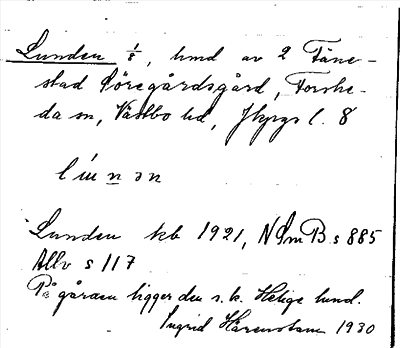 Lunden 1/8, hmd av 2 Tåne-
stad Söregårdsgård, Forshe-
da sn, Västbo hd, Jkpgs l. 8
Lunden kb 1921, NSmB s 885
Allv s 117
På gården ligger den s.k. Helige lund.
Ingrid Härenstam 1930